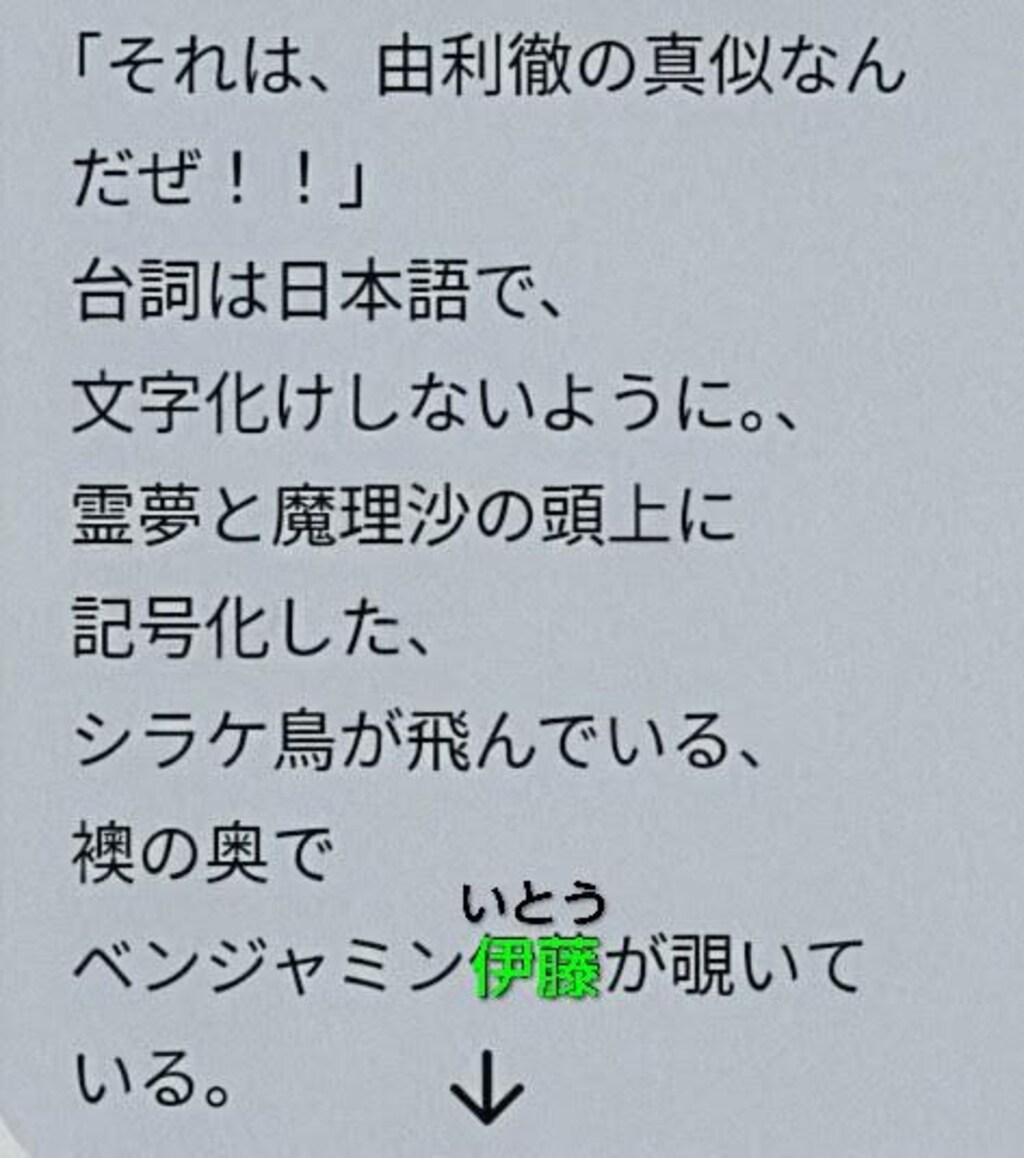 「それは、由利徹の真似なん
だぜ！！」
台詞は日本語で、
文字化けしないように。、
霊夢と魔理沙の頭上に
記号化した、
シラケ鳥が飛んでいる、
襖の奥で
いとう
ベンジャミン伊藤が覗いて
いる。 ↓